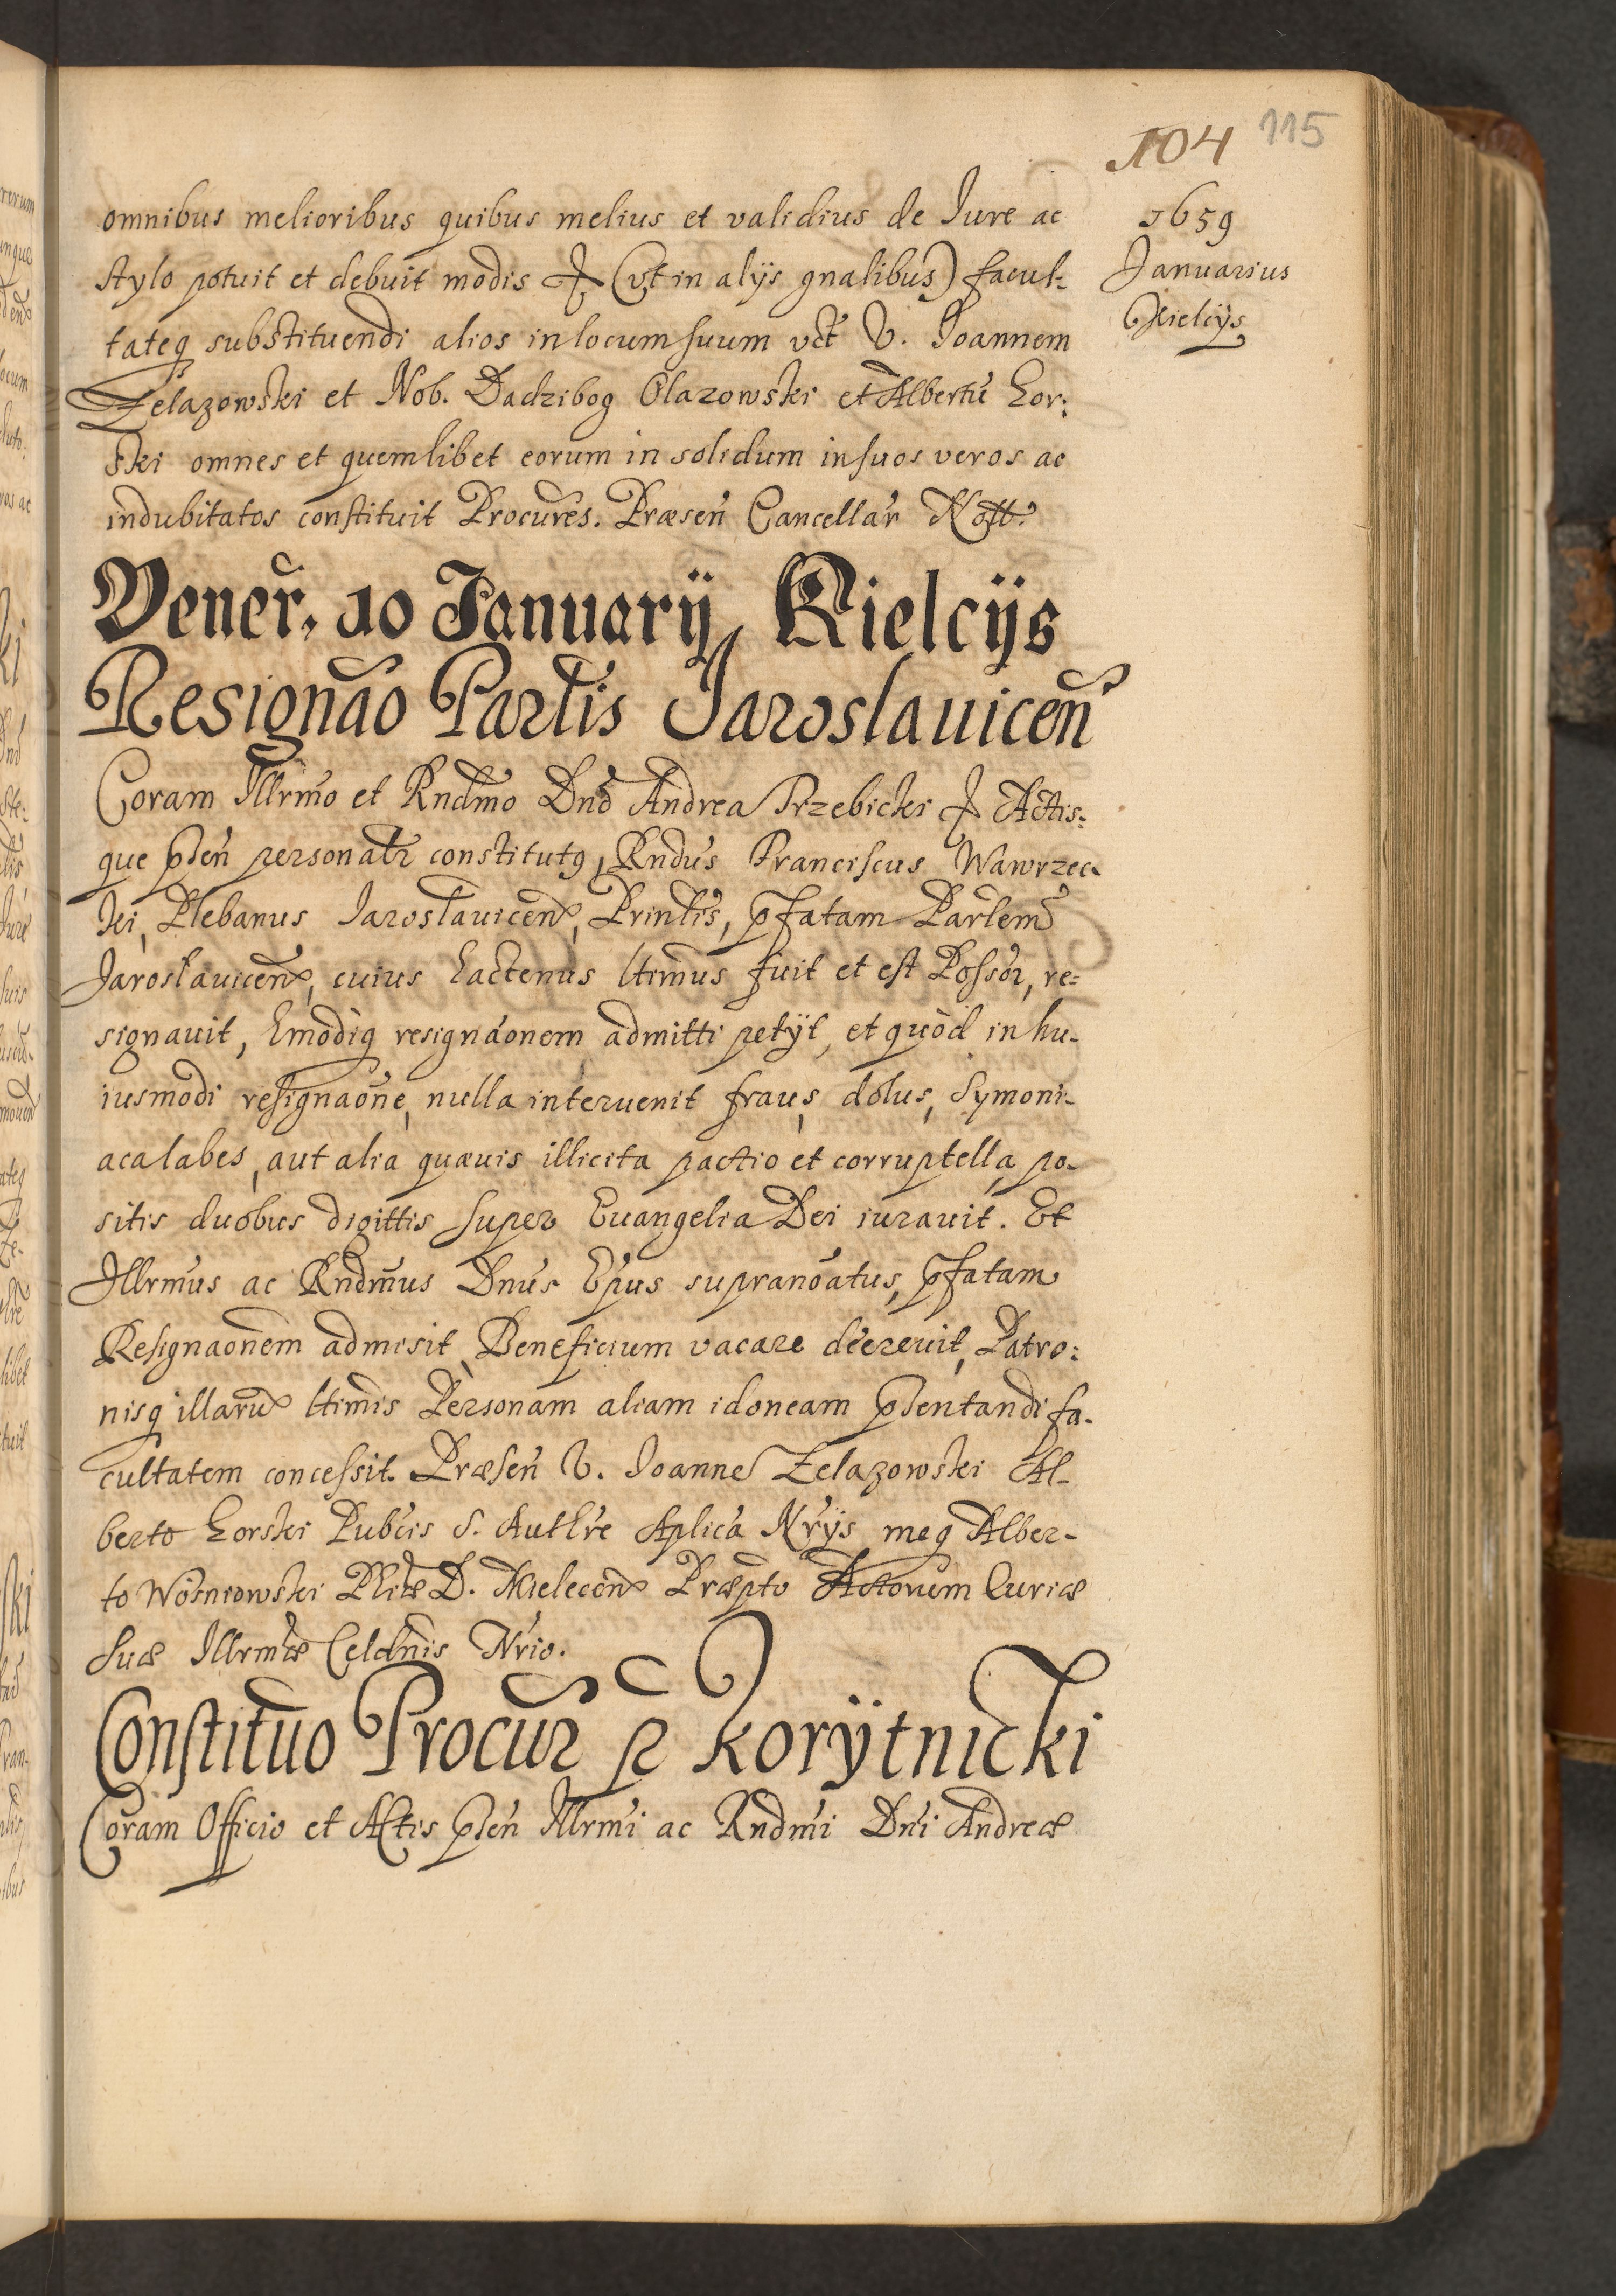 104 115
1659
Januarius
Kielcijs
omnibus melioribus quibus melius et validius de Iure ac
stylo potuit et debuit modis (vt in alijs gnalibus) facul-
tateq substituendi alios in locum suum vct V. Joannem
Zelazowski et Nob. Dadzibog Olazowski et Albertũ Gor:
ski omnes et quemlibet eorum in solidum in suos veros ac
indubitatos constituit Procures. Præsen Cancellar Nott.
Vener. 10 Januarij Kielcijs
Resignao Partis Jaroslauicen
Coram Illrmo et Rndmo Dno Andrea Trzebicki Actis-
que pſen personalr constitutq, Rndus Franciscus Wawrzec-
ki, Plebanus Iaroslauicen, Printis, pfatam Partem
Jaroslauicen, cuius hactenus ltimus fuit et est Possor, re=
signauit, hmodiq resignaonem admitti petijt, et quòd in hu-
iusmodi resignaone, nulla interuenit fraus, dolus, Symoni-
aca labes, aut alia quæuis illicita pactio et corruptella, po-
sitis duobus digittis super Euangelia Dei iurauit. Et
Illrmus ac Rndmus Dnus Epus supranoatus, pfatam
Resignaonem admisit, Beneficium vacare decreuit, Patro:
nisq illarũ ltimis Personam aliam idoneam pſentandi fa-
cultatem concessit. Præsen V. Joanne Zelazowski Al-
berto Gorski Pubcis S. Authre Aplica Nrijs meq Alber-
to Wosniowski Phiæ D. Mielecen Præpto Actorum Curiæ
Suæ Illrmæ Celdnis Nrio.
Constituo Procur p Korÿtnicki
Coram Officio et Actis pſen Illrmi ac Rndmi Dni Andreæ